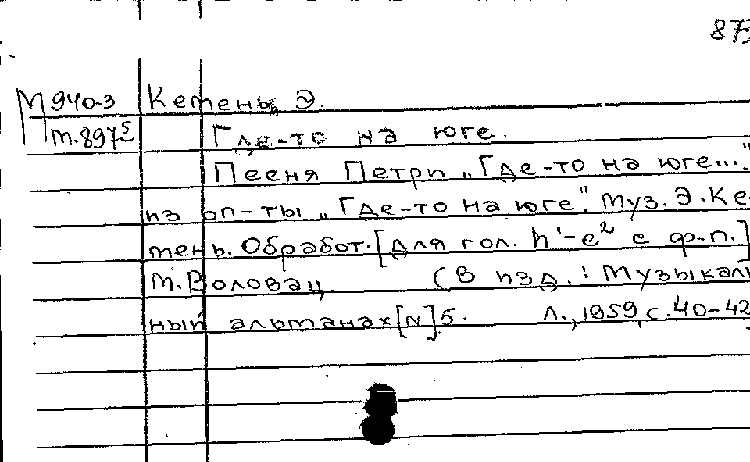 873
М 940-3 Кетень, Э.
m.897⁵ Где-то на юге.
Песня Петри „Где-то на юге..."
из оп-ты „Где-то на юге". Муз. Э. Ке-
тень. Обработ. [для гол. h¹-e² с ф.-п.]
М. Воловац (В изд.: Музыкаль
ный альманах [N] 5. Л., 1959, с. 40-42